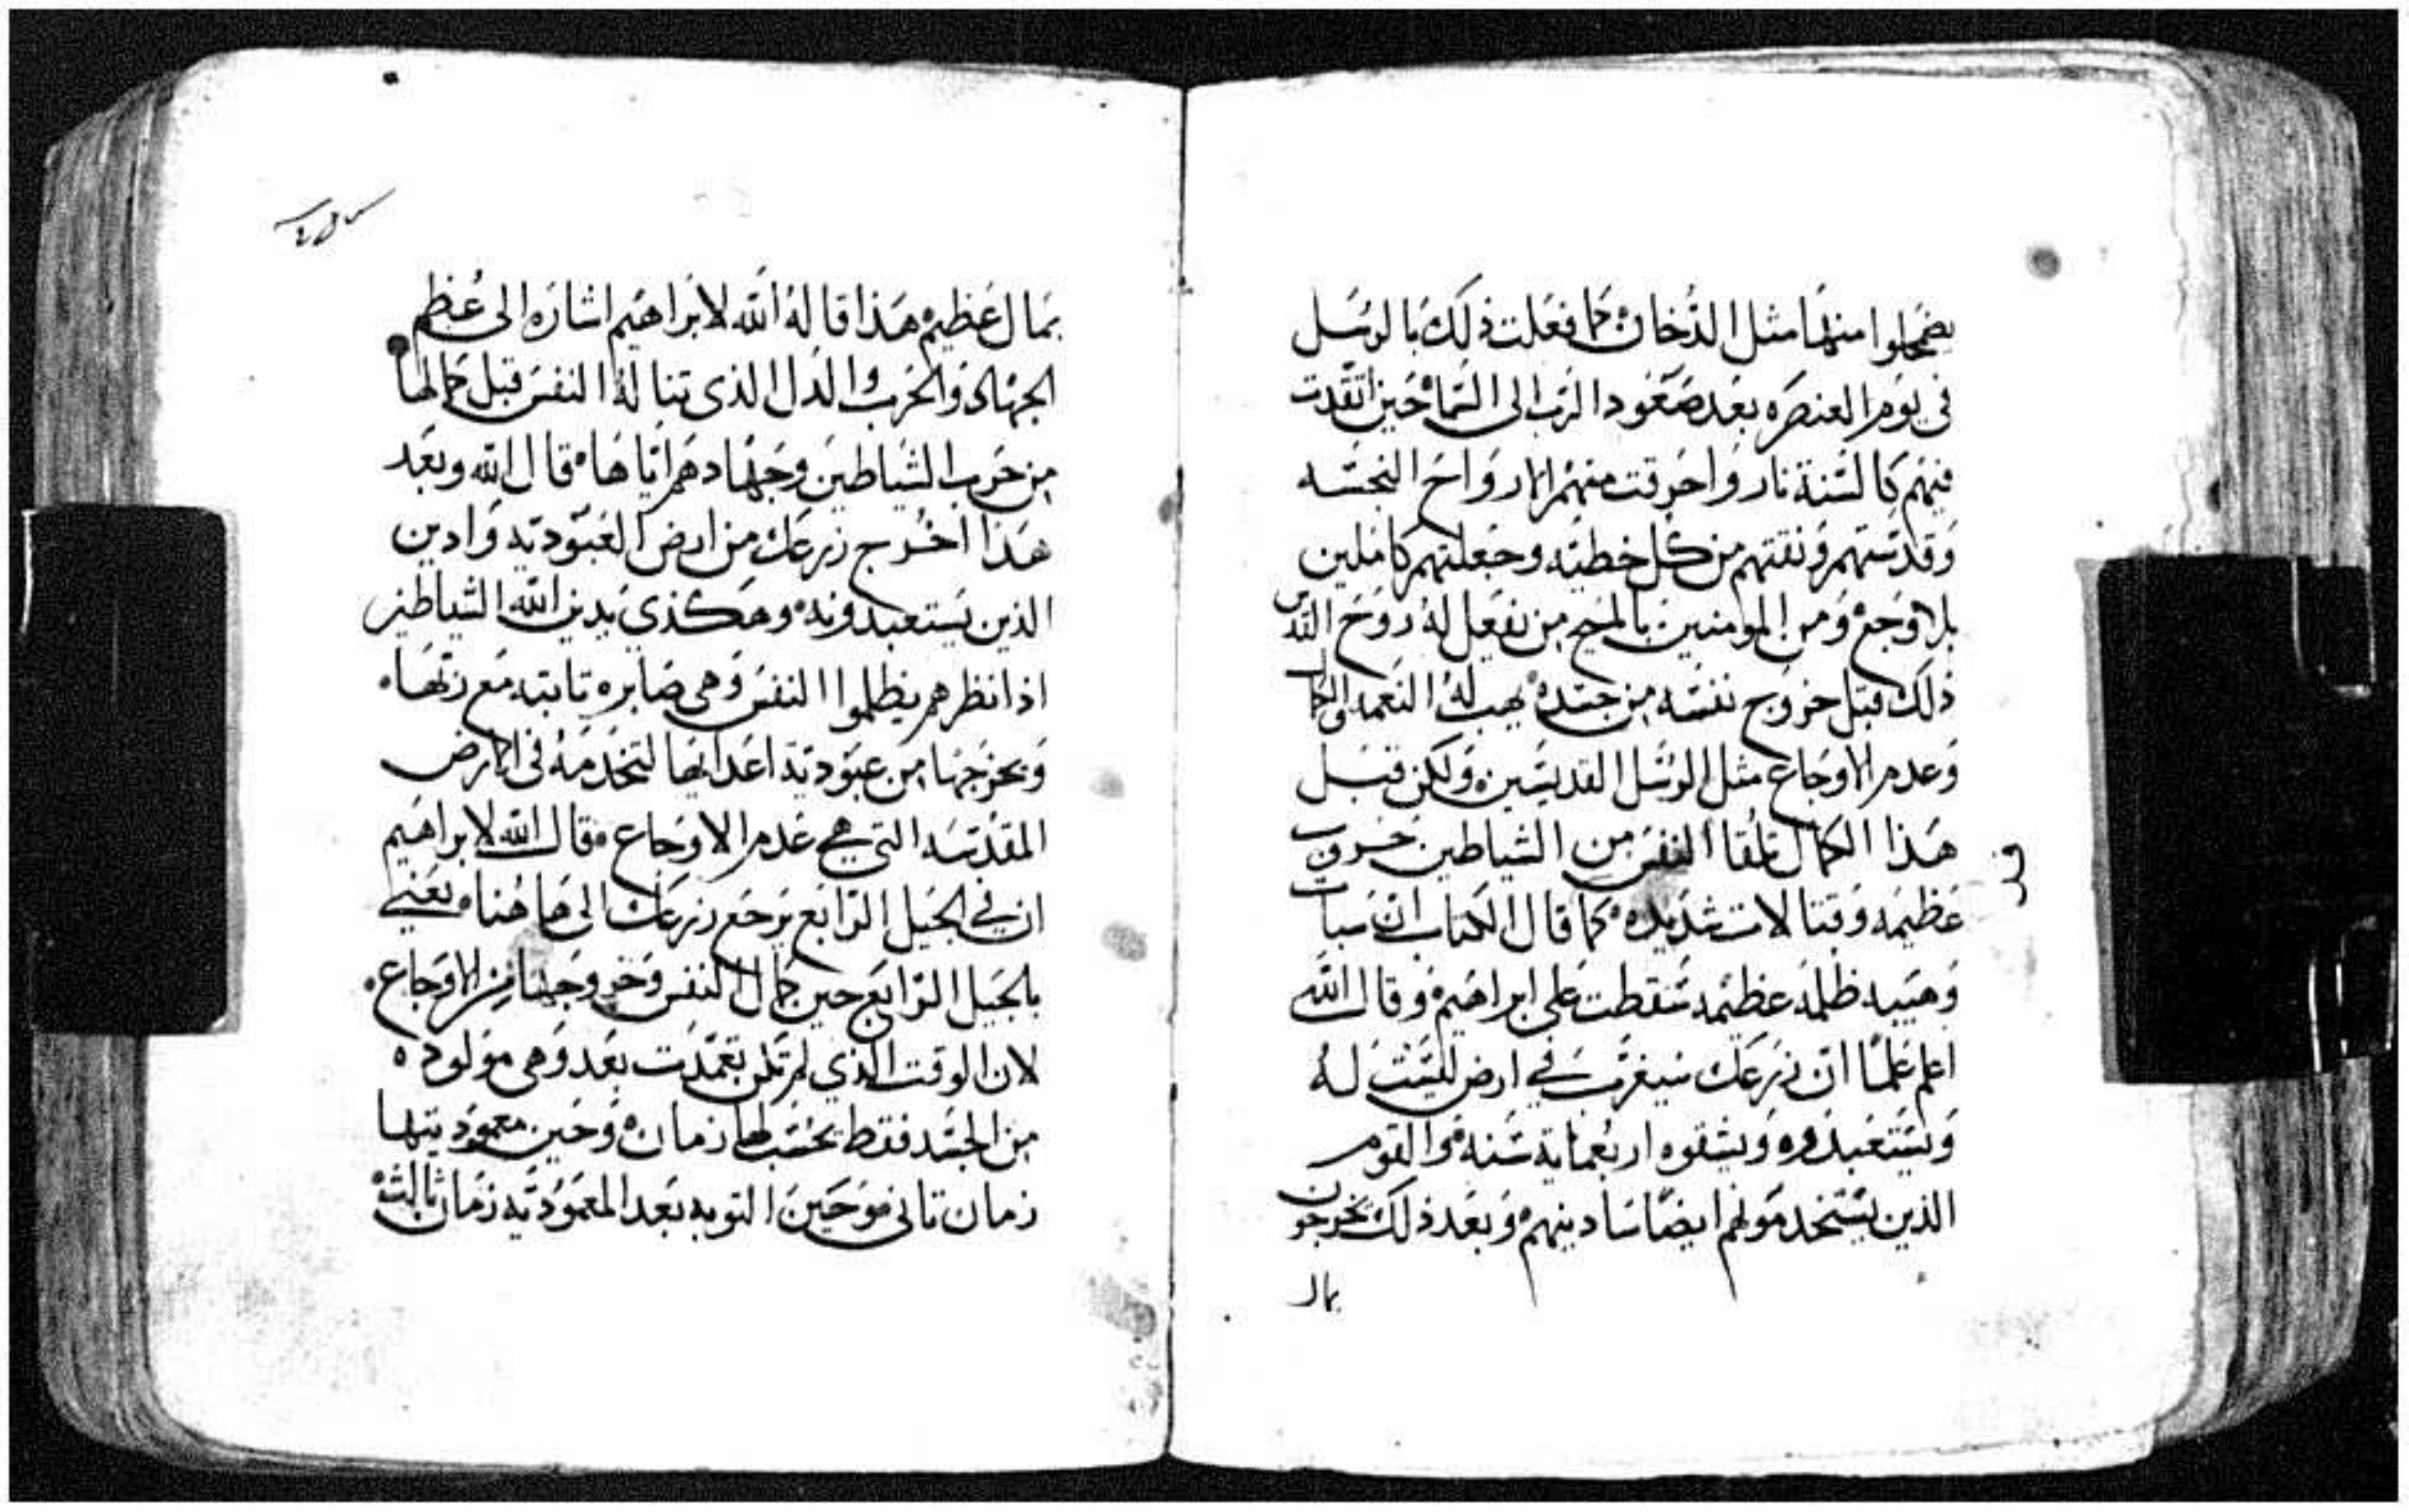 يضمحلوا منها مثل الدخان كما فعلت ذلك بالرسل
في يوم العنصره بعد صعود الرب الى السماء حين اتقدت
فيهم كالسنة نار واحرقت منهم الارواح النجسه
وقدستهم ونقتهم من كل خطيه وجعلتهم كاملين
بلا وجع ومن المومنين بالمسيح من يفعل له روح القدس
ذلك قبل خروج نفسه من جسده يهب له النعمه والكمال
وعدم الاوجاع مثل الرسل القديسين ولكن قبل
هذا الكمال تلقا النفس من الشياطين حروب
عظيمه وقتالات شديده كما قال الكتاب ان سبات
وهيبه ظلمه عظيمه سقطت على ابراهيم وقال الله
اعلم علما ان زرعك سيغرب في ارض ليست له
ويستعبدوه ويشقوه اربعماية سنه والقوم
الذين يستخدمولهم ايضا سادينهم وبعد ذلك يخرجون
بمال
بمال عظيم هذا قاله الله لابراهيم اشاره الى عظم
الجهاد والحرب والذل الذى تناله النفس قبل كمالها
من حرب الشياطين وجهادهم اياها قال الله وبعد
هذا اخرج زرعك من ارض العبوديه وادين
الذين يستعبدونه وهكذى يدين الله الشياطين
اذا نظرهم يظلموا النفس وهى صابره ثابته مع ربها
ويخرجها من عبودية اعدايها لتخدمه فى الارض
المقدسه التي هي عدم الاوجاع قال الله لابراهيم
ان في الجيل الرابع يرجع زرعك الى هاهنا يعني
بالجيل الرابع حين كمال النفس وخروجها من الاوجاع
لان الوقت الذي لم تكن تعمدت بعد وهى مولوده
من الجسد فقط يحسب لها زمان وحين معموديتها
زمان تانى وحين التوبه بعد المعموديه زمان ثالث